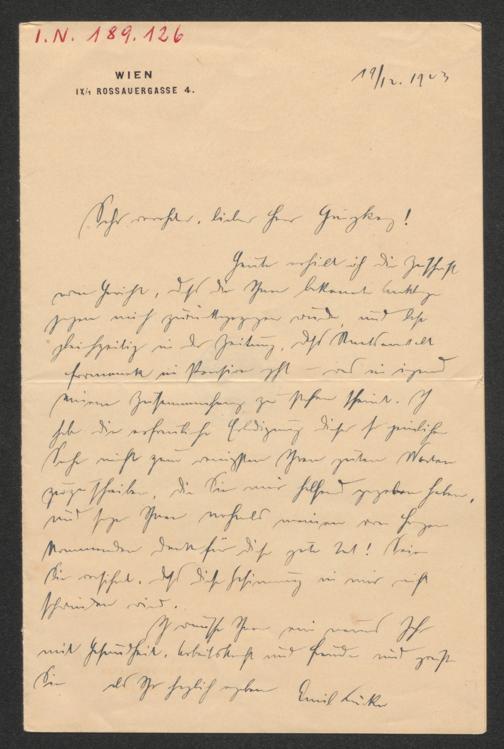 I.N. 189.126
WIEN
IX/1 ROSSAUERGASSE 4.
19/12. 1903
Sehr verehrter, lieber Herr !
Heute erhielt ich die Zuschrift
vom Gericht, daß die Ihnen bekannte Anklage
gegen mich zurückgezogen wurde, und lese
gleichzeitig in der Zeitung, daß Staatsanwalt
in Pension geht – was in irgend
einem Zusammenhang zu stehen scheint. Ich
habe die erfreuliche Erledigung dieser so peinlichen
Sache nicht zum wenigsten Ihren guten Worten
zuzuschreiben, die Sie mir helfend gegeben haben,
und sage Ihnen nochmals meinen von Herzen
kommenden Dank für diese gute Tat! Seien
Sie versichert, daß diese Gesinnung in mir nicht
schwinden wird.
Ich wünsche Ihnen ein neues Jahr
mit Gesundheit, Arbeitskraft und Freude und grüße
Sie als Ihr herzlich ergebener Emil